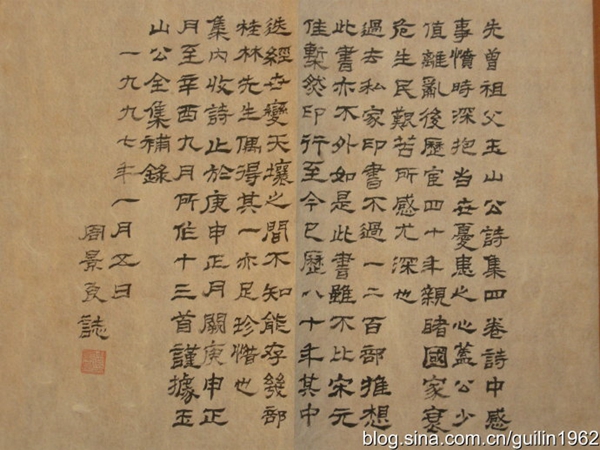 先曾祖父玉山公詩集四卷詩中感
事憤時深抱当世憂患之心蓋公少
值離亂後歷宦四十年親睹國家衰
危生民艱苦所感尤深也
過去私家印書不過一二百部推想
此書亦不外如是此書雖不比宋元
佳槧然印行至今已歷八十年其中
迭經世變天壤之間不知能存幾部
桂林先生偶得其一亦足珍惜也
集內收詩止於庚申正月闕庚申正
月至辛酉九月所作十三首謹據玉
山公全集補錄
一九九七年一月五日
周景良誌
blog.sina.com.cn/guilin1962